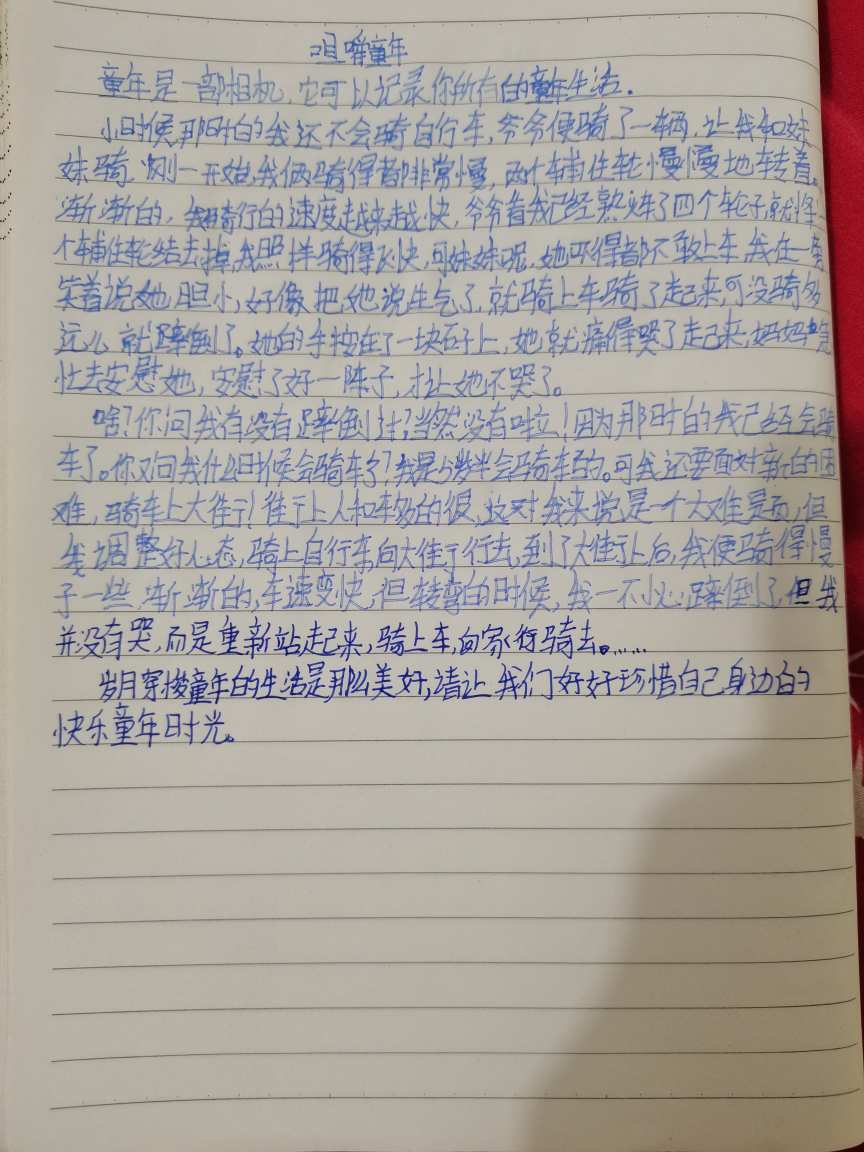 咀嚼童年
童年是一部相机,它可以记录你所有的童年生活.
小时候,那时的我还不会骑自行车,爷爷便骑了一辆,让我和妹
妹骑,刚一开始,我俩骑得都非常慢,两个辅住轮慢慢地转着。
渐渐的,我骑行的速度越来越快,爷爷看我已经熟练了四个轮子,就将
个辅住轮给去掉,我照样骑得飞快,可妹妹呢,她吓得都不敢上车,我在一旁
笑着说她胆小,好像把她说生气了,就骑上车骑了起来,可没骑多
远,就蹿倒了。她的手按在了一块石子上,她就痛得哭了起来,妈妈
忙去安慰她,安慰了好一阵子,才让她不哭了。
啥?你问我有没有蹿倒过?当然没有啦!因为那时的我已经会骑
车了。你又问我什么时候会骑车了?我是5岁半会骑车的。可我还要面对新的困
难,骑车上大街!街上人和车多的很,这对我来说是一个大难题,但
我调整好心态,骑上自行车向大街行去,到了大街上后,我便骑得慢
子一些,渐渐的,车速变快,但转弯的时候,我一不小心蹿倒了,但我
并没有哭,而是重新站起来,骑上车,向家行骑去。……
岁月穿梭,童年的生活是那么美好,请让我们好好珍惜自己身边的
快乐童年时光。